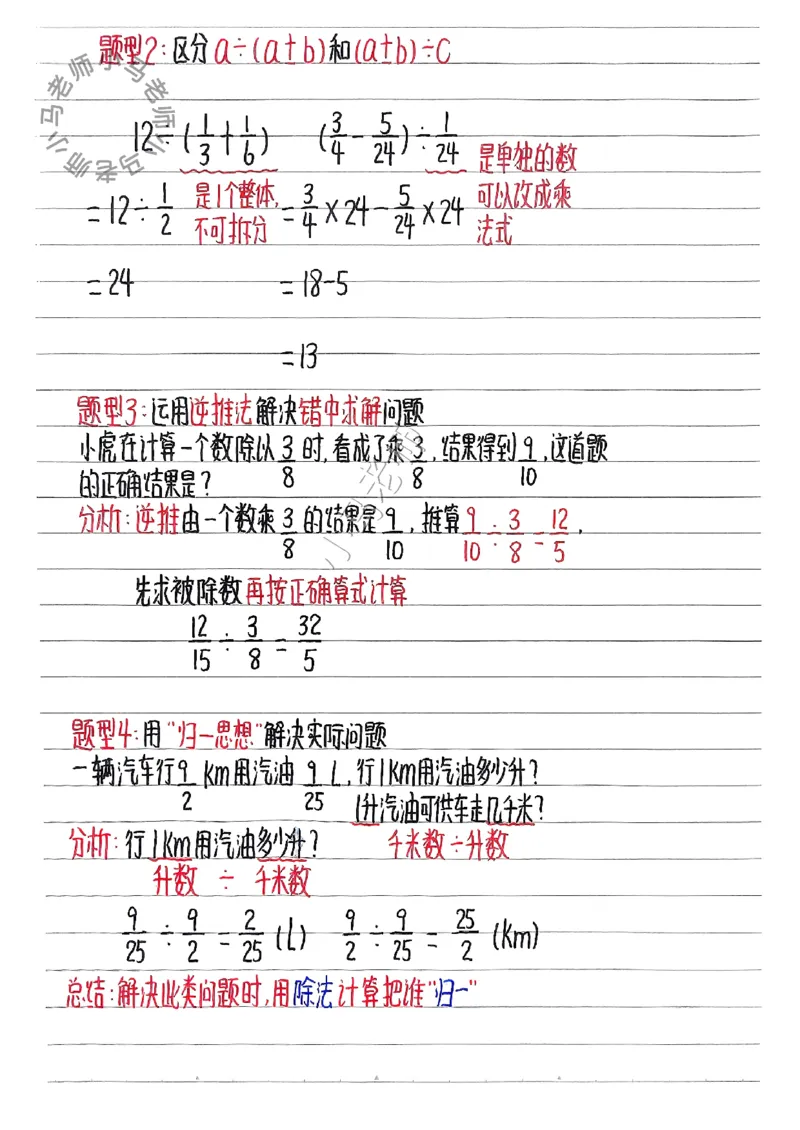 题型2:区分a÷(a±b)和(a±b)÷c
12÷(1/3+1/6) (3/4-5/24)÷1/24 是单独的数
=12÷1/2 是1个整体, =3/4×24-5/24×24 可以改成乘
不可拆分 法式
=24 =18-5
=13
题型3:运用逆推法解决错中求解问题
小虎在计算一个数除以3/8时,看成了乘3/8,结果得到9/10,这道题
的正确结果是?
分析:逆推由一个数乘3/8的结果是9/10,推算9/10÷3/8=12/5,
先求被除数再按正确算式计算
12/15÷3/8=32/5
题型4:用"归一思想"解决实际问题
一辆汽车行9/2km用汽油9/25L,行1km用汽油多少升?
1升汽油可供车走几千米?
分析:行1km用汽油多少升? 千米数÷升数
升数÷千米数
9/25÷9/2=2/25(L) 9/2÷9/25=25/2(km)
总结:解决此类问题时,用除法计算把谁"归一"
小马老师小马老师小马老师
小马老师